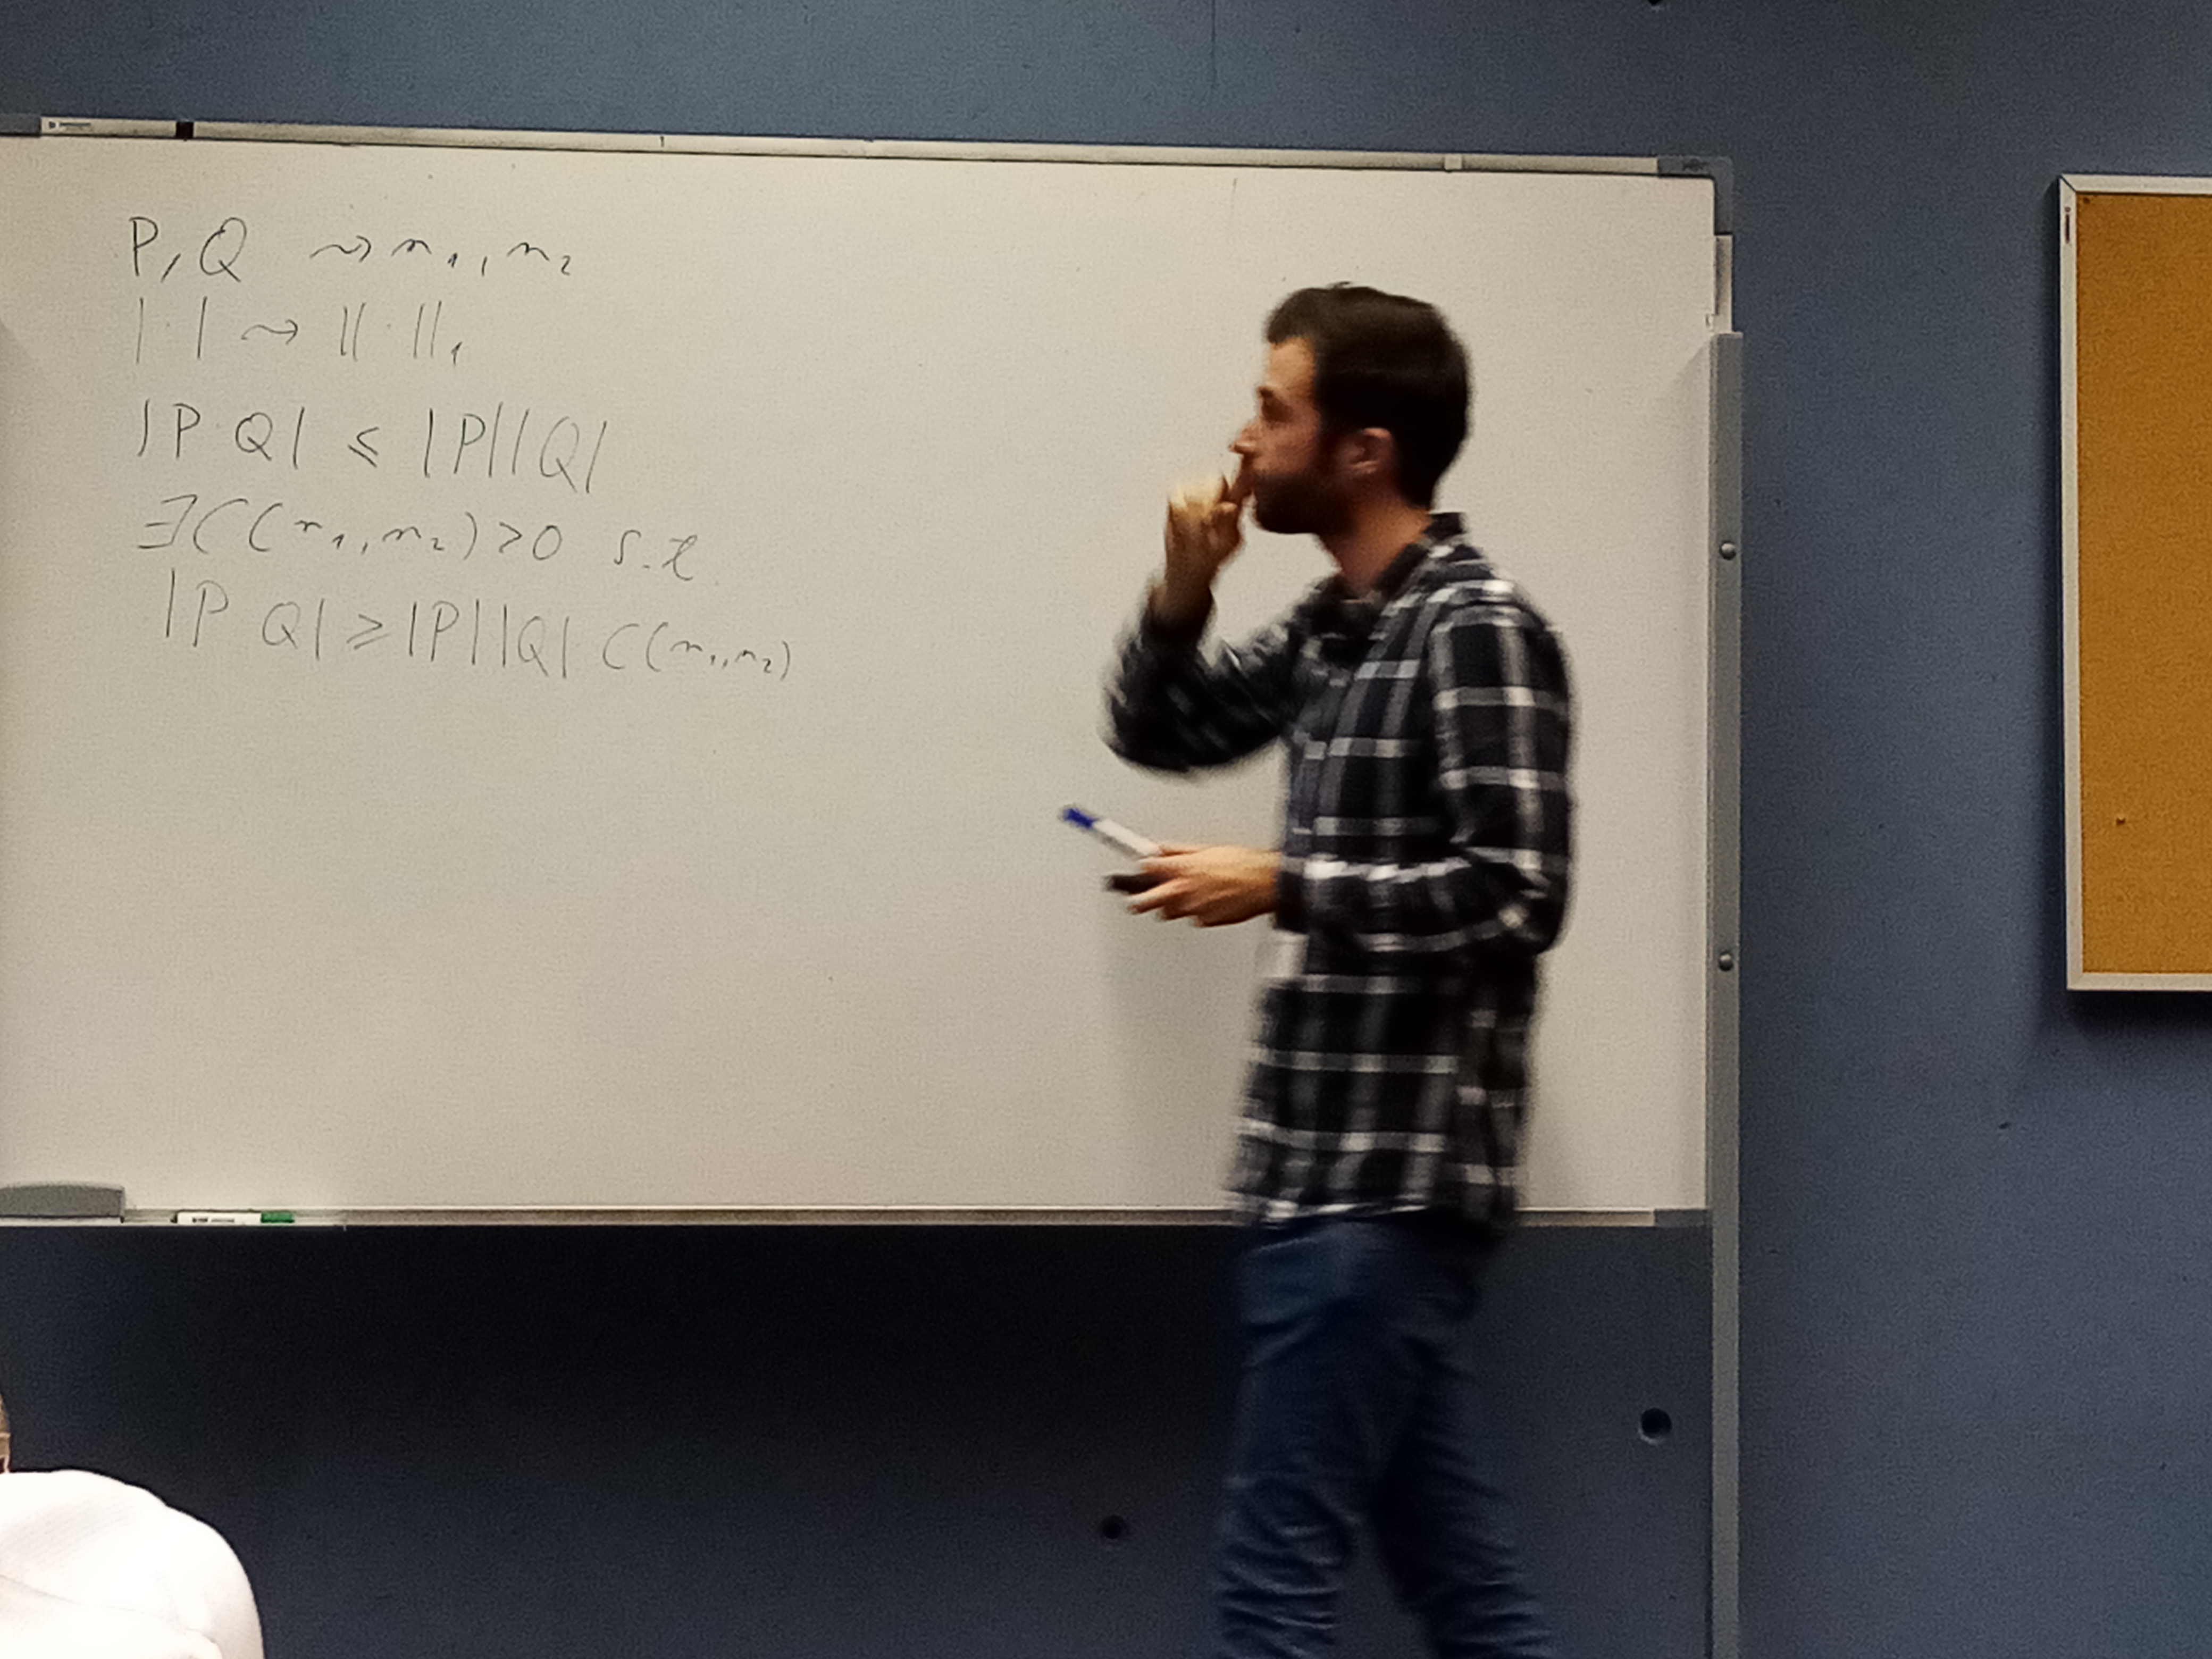 P, Q ⇝ n₁, n₂
|·| ⇝ ||·||₁
|P·Q| ≤ |P||Q|
∃C(n₁, n₂) > 0 s.t.
|P Q| ≥ |P||Q| C(n₁, n₂)